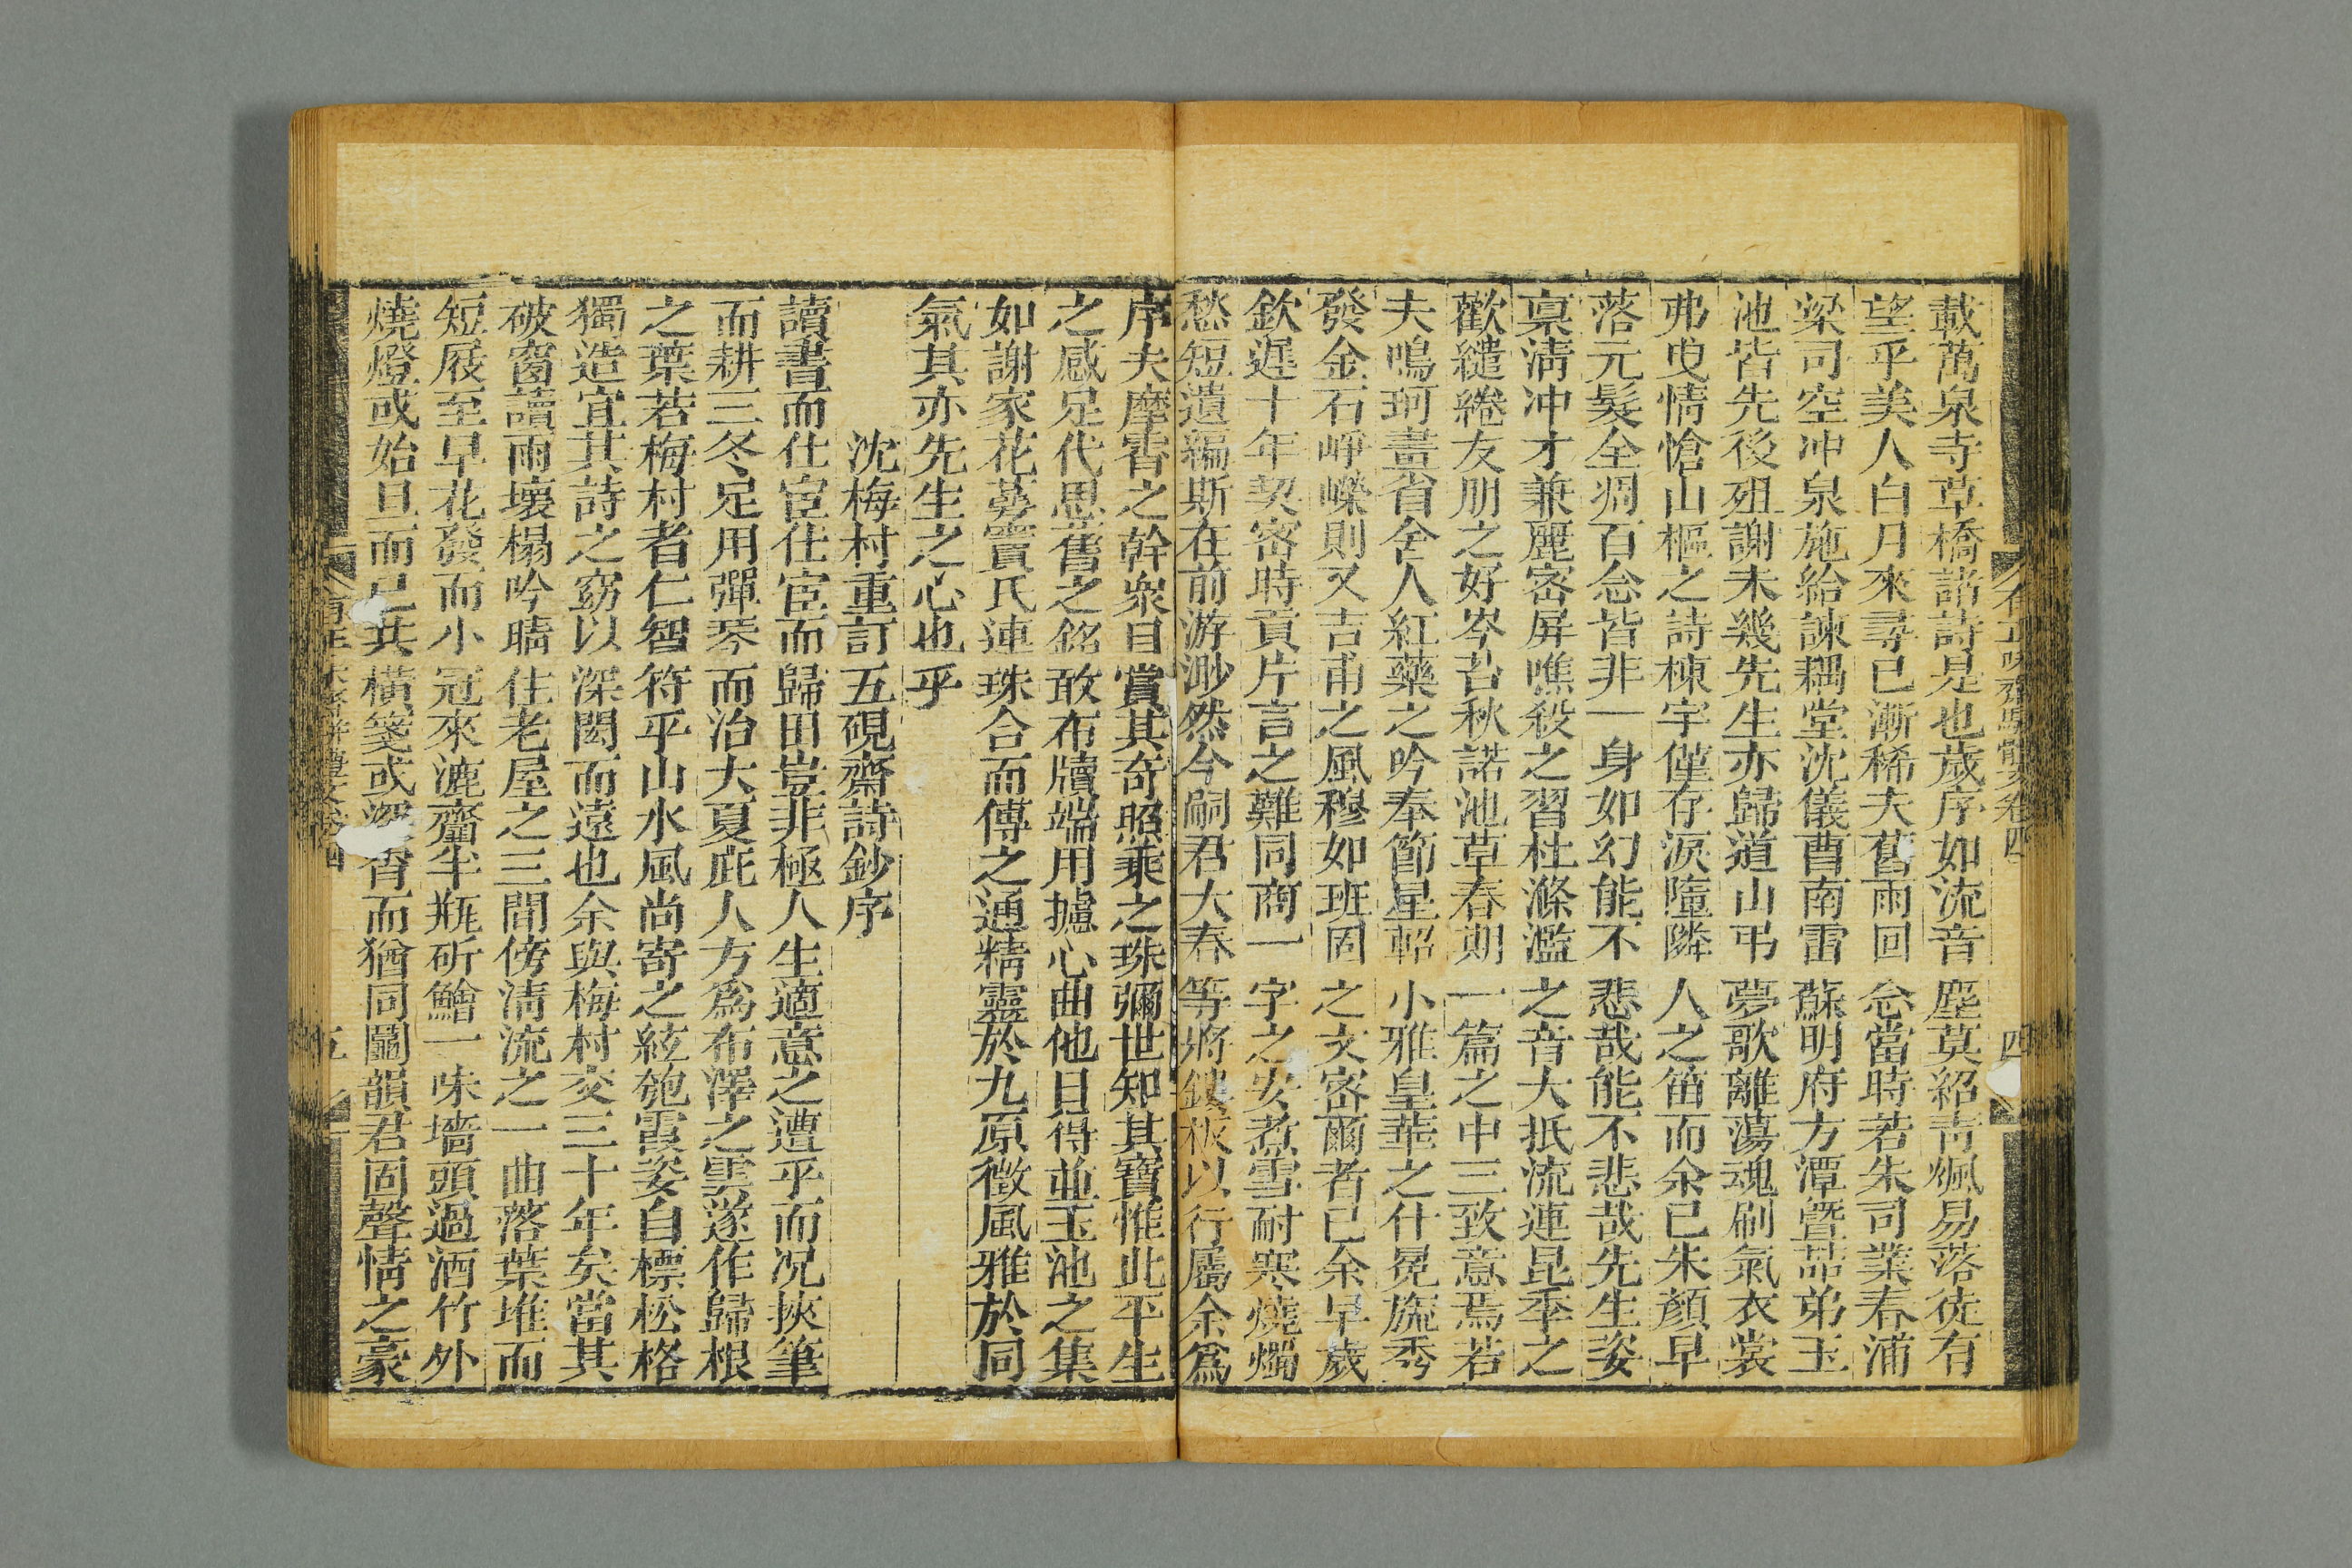 載萬泉寺草橋諸詩是也歲序如流音塵莫紹青楓易落徒有
望乎美人白月來尋已漸稀夫舊雨回念當時若朱司業春浦
梁司空冲泉施給諫耦堂沈儀曹南雷蘇明府方潭暨喆弟玉
池皆先後殂謝未幾先生亦歸道山弔夢歌離蕩魂刷氣衣裳
弗曳情愴山樞之詩棟宇僅存淚墮隣人之笛而余已朱顏早
落元髮全凋百念皆非一身如幻能不悲哉能不悲哉先生姿
稟淸冲才兼麗密屏噍殺之習杜滌濫之音大抵流連昆季之
歡繾綣友朋之好岑苔秋諾池草春期一篇之中三致意焉若
夫鳴珂畫省舍人紅藥之吟奉節星軺小雅皇華之什冕旒秀
發金石崢嶸則又吉甫之風穆如班固之文密爾者已余早歲
欽遲十年契密時貢片言之難同商一字之安煮雪耐寒燒燭
愁短遺編斯在前游渺然今嗣君大春等將鋟板以行屬余爲
序夫摩霄之幹衆目賞其奇照乘之珠彌世知其寶惟此平生
之感足代思舊之銘敢布牘端用攄心曲他日得並玉池之集
如謝家花萼竇氏連珠合而傳之通精靈於九原徵風雅於同
氣其亦先生之心也乎
沈梅村重訂五硯齋詩鈔序
讀書而仕宦仕宦而歸田豈非極人生適意之遭乎而况挾筆
而耕三冬足用彈琴而治大夏庇人方爲布澤之雲遂作歸根
之葉若梅村者仁智符乎山水風尚寄之絃匏霞姿自標松格
獨造宜其詩之窈以深閎而遠也余與梅村交三十年矣當其
破窗讀雨壞榻吟晴住老屋之三間傍淸流之一曲落葉堆而
短屐至早花發而小冠來漉齏半瓶斫鱠一味墻頭過酒竹外
燒燈或始旦而已共橫箋或深宵而猶同鬬韻君固聲情之豪